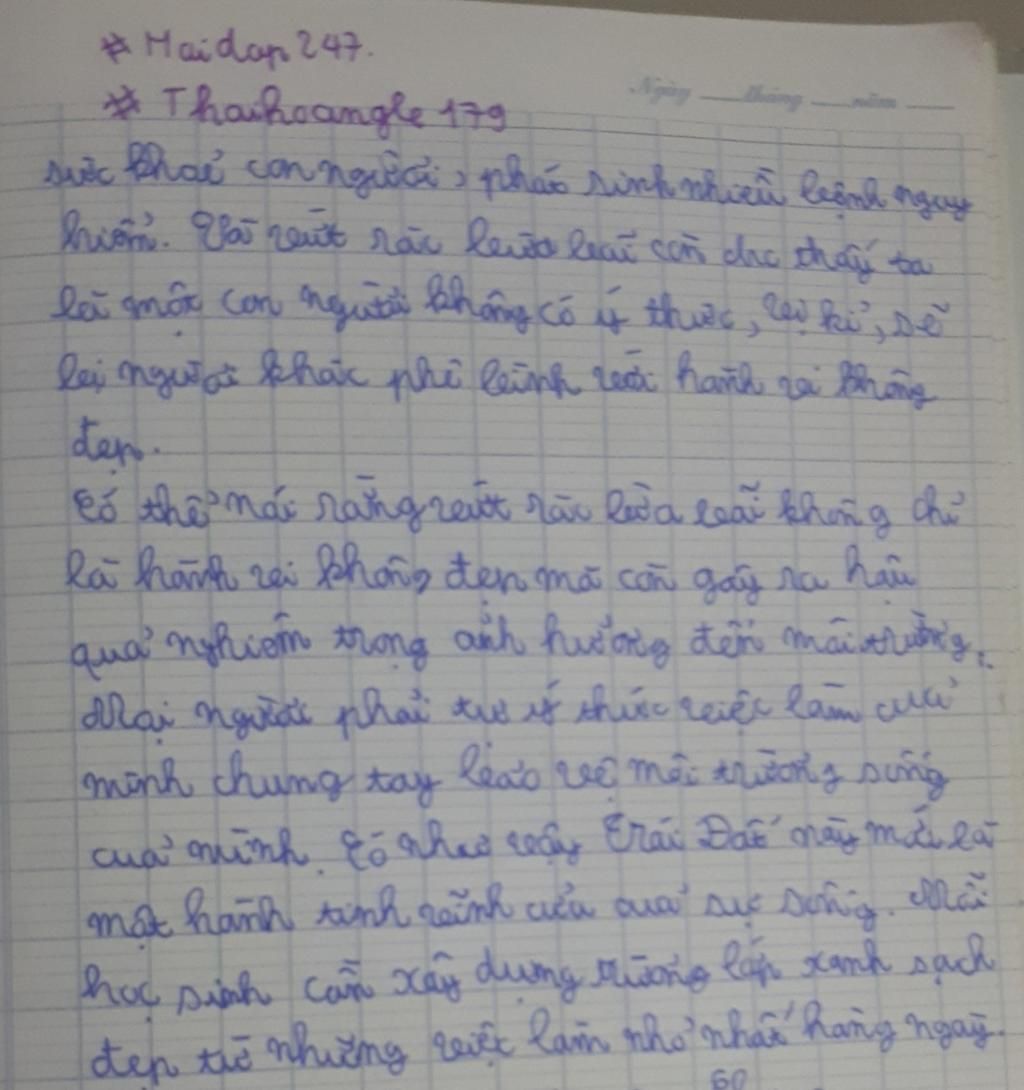 * Maidap247.
* Thaihoangle179
Ngày tháng năm
sức khoẻ con người, phát sinh nhiều bệnh nguy
hiểm. Vì vứt rác bừa bãi còn cho thấy ta
là một con người không có ý thức, vị kỉ, sẽ
bị người khác phê bình với hành vi không
đẹp.
Có thể nói rằng vứt rác bừa bãi không chỉ
là hành vi không đẹp mà còn gây ra hậu
quả nghiêm trọng ảnh hưởng đến môi trường.
Mọi người phải tự ý thức việc làm của
mình chung tay bảo vệ môi trường sống
của mình. Có như vậy Trái Đất này mới là
một hành tinh của sự sống. Mỗi
học sinh cần xây dựng trường lớp xanh sạch
đẹp từ những việc làm nhỏ nhất hằng ngày.
60